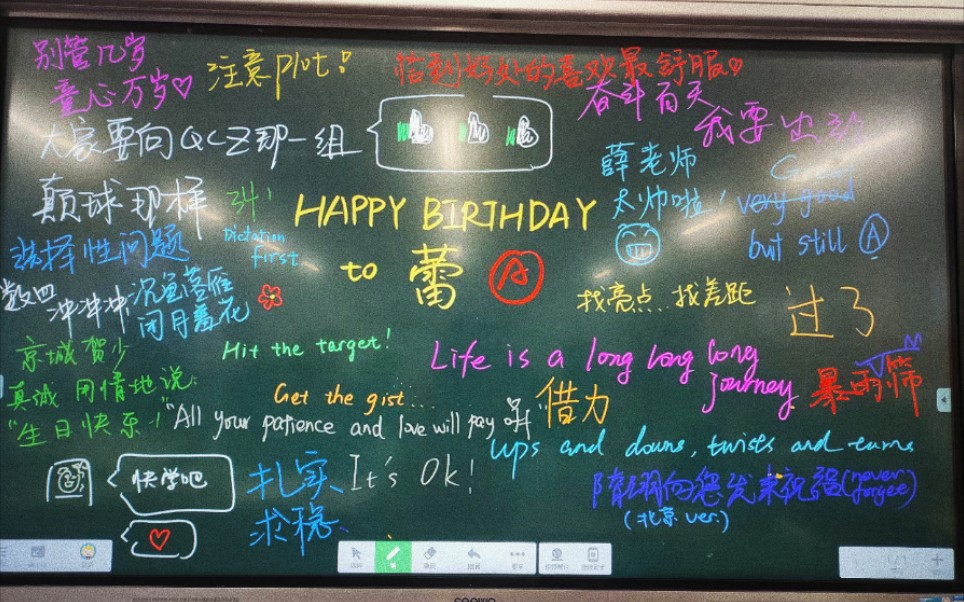 别管几岁
童心万岁♡
注意plot!
恰到好处的喜欢最舒服♡
奋斗百天
我要出
大家要向QCZ那一组
颠球那样
薛老师
太帅啦！
very good
but still A
HAPPY BIRTHDAY
to 蕾 A
Dictation
first
选择性问题
数四
冲冲冲
沉鱼落雁
闭月羞花
找亮点 找差距
过了
京城贺少
真诚 用情地说：
"生日快乐！"
Hit the target!
Life is a long long long
journey
暴雨笳
Get the gist...
借力
"All your patience and love will pay
ups and downs, twists and turns
快学吧
扎实
求稳
It's Ok!
向您发来祝福(never
(北京 ver.)